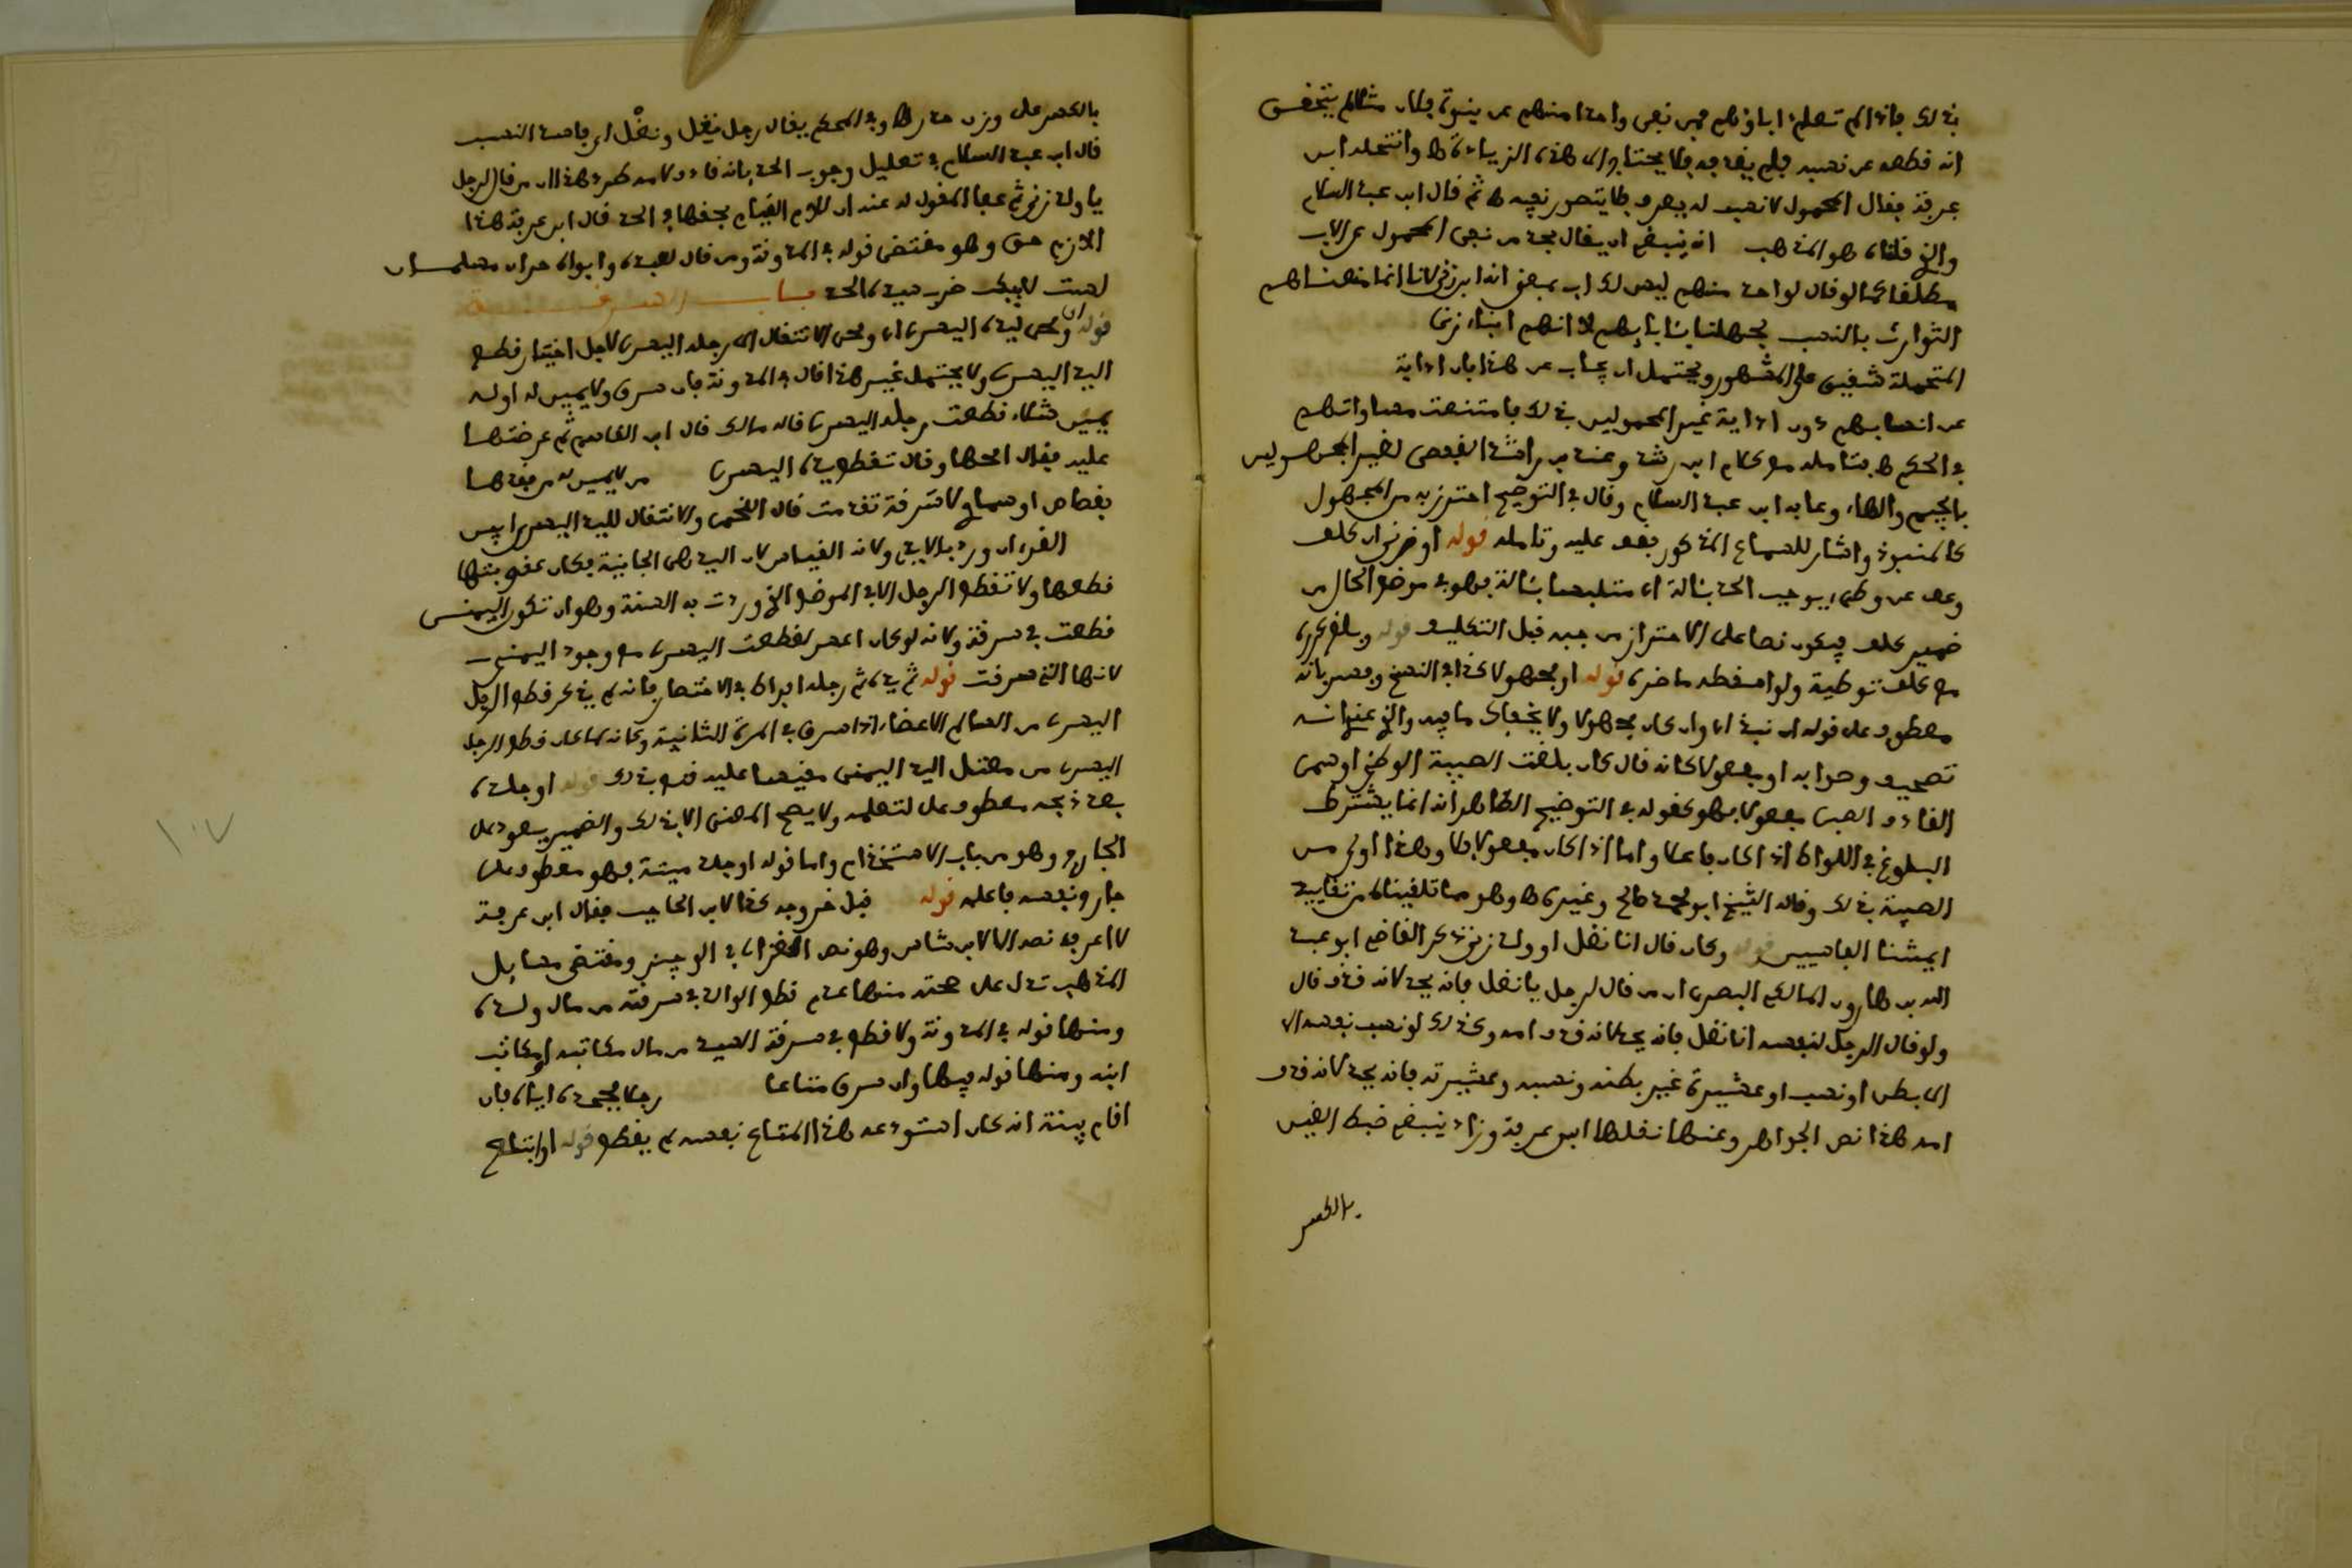 بذلك فإذا لم تعلم اباؤهم فمن نفى واحدا منهم عن بنوة فلان مثلا لم يتحقق
انه قطعه عن نسبه فلم يقذفه فلا يحتاج الى هذه الزيادة وانتحله ابن
عرفة فقال المحمول لا نسب له يعرف فلا يتصور نفيه ثم قال ابن عبد السلام
والذي قلناه هو المذهب انه ينبغي ان يقال يحد من نفى المحمول عن الاب
مطلقا كما لو قال لواحد منهم ليس لك اب بمعنى انه ابن زنى لانا انما منعناهم
التوارث بالنسب لجهلنا بآبائهم لا انهم ابناء زنى
المتحملة شقيقين على المشهور ويحتمل ان يجاب عن هذا بان اذاية
عن انسابهم دون اذاية غير المحمولين في ذلك فامتنعت مساواتهم
في الحكم فتأمله مع كلام ابن رشد وعند بن راشد القفصي لغير المجهولين
بالجيم والهاء وعابه ابن عبد السلام وقال في التوضيح احترز به من المجهول
كالمنبوذ واشار للسماع المذكور فقف عليه وتامله قوله او زنى ان كلف
وعف عن وطء يوجب الحد بئالة اي متلبسا بئالة فهو في موضع الحال من
ضمير كلف فيكون نصا على الاحتراز من جبه قبل التكليف قوله وبلغ كرره
مع كلف توطية ولو اسقطه ما ضره قوله او مجهولا كذا في النسخ وفسر بانه
معطوف على قوله ان نبذ اي وان كان مجهولا ولا يخفاك ما فيه والذي عندي انه
تصحيف وصوابه او مفعولا كانه قال كان بلغت الصبية الوطئ او سمى
القاذف الصبى مفعولا فهو كقوله في التوضيح الظاهر انه انما يشترط
البلوغ في اللواط اذا كان فاعلا واما اذا كان مفعولا فلا وهذا اولى من
الصبية في ذلك وقاله الشيخ ابو محمد صالح وغيره وهو مما تلقيناه من تقاييد
ايمتنا الفاسيين قوله وكان قال انا نغل او ولد زنى ذكر القاضي ابو عبد
الله بن هارون المالكي البصري ان من قال لرجل يا نغل فانه يحد لانه قذف قال
ولو قال الرجل لنفسه انا نغل فانه يحد لانه قذف امه وكذلك لو نسب نفسه الا
الى بطن او نسب او عشيرة غير بطنه ونسبه وعشيرته فانه يحد لانه قذف
امه هذا نص الجواهر وعنها نقلها ابن عرفة وزاد ينبغي ضبط الغين
بالكسر
بالكسر على وزن حذر وفي المحكم يقال رجل نغِل ونغْل اي فاسد النسب
قال ابن عبد السلام في تعليل وجوب الحد بانه قاذف لامه طرد هذا ان من قال لرجل
يا ولد زنى ثم عفا المقول له عنه ان للام القيام بحقها في الحد قال ابن عرفة هذا
اللازم حق وهو مقتضى قوله في المدونة ومن قال لعبده وابواه حران مسلمان
لست لابيك ضرب سيده الحد باب السرقة
قوله ونحى ليده اليسرى اي ونحى الانتقال الى رجله اليسرى لاجل اختيار قطع
اليد اليسرى ولا يحتمل غير هذا قال في المدونة فان سرق ولا يمين له او له
يمين شلاء قطعت رجله اليسرى قاله مالك قال ابن القاسم ثم عرضتها
عليه فقال امحها وقال تقطع يده اليسرى من لا يمين له من فقدها
بقصاص او سماوي لا سرقة تقدمت قال اللخمي والانتقال لليد اليسرى ابين
القرءان ورد بالايدي ولانه القياس لان اليد هي الجانية فكان عقوبتها
قطعها ولا تقطع الرجل الا في الموضع الذي وردت به السنة وهو ان تكون اليمنى
قطعت في سرقة ولانه لو كان اعسر لقطعت اليسرى مع وجود اليمنى
لانها التي سرقت قوله ثم يده ثم رجله افراط في الاختصار فانه لم يذكر قطع الرجل
اليسرى من السالم الاعضاء اذا سرق في المرة الثانية وكانه لما كان قطع الرجل
اليسرى من مختل اليد اليمنى مقيسا عليه قنع بذلك قوله او جلده
بعد ذبحه معطوف على لتعلمه ولا يصح المعنى الا بذلك والضمير يعود على
الجارح وهو من باب الاستخدام واما قوله او جلد ميتة فهو معطوف على
جارح ونفسه فاعلمه قوله قبل خروجه كذا لابن الحاجب فقال ابن عرفة
لا اعرفه نصا الا لابن شاس وهو نص الغزالي في الوجيز ومقتضى مسايل
المذهب تدل على صحته منها عدم قطع الوالد في سرقته من مال ولده
ومنها قوله في المدونة ولا قطع في سرقة السيد من مال مكاتبه او مكاتب
ابنه ومنها قوله فيها وان سرق متاعا رجلا يجحده اياه فان
اقام بينة انه كان استودعه هذا المتاع نفسه لم يقطع قوله او ابتلاع
١٠٧